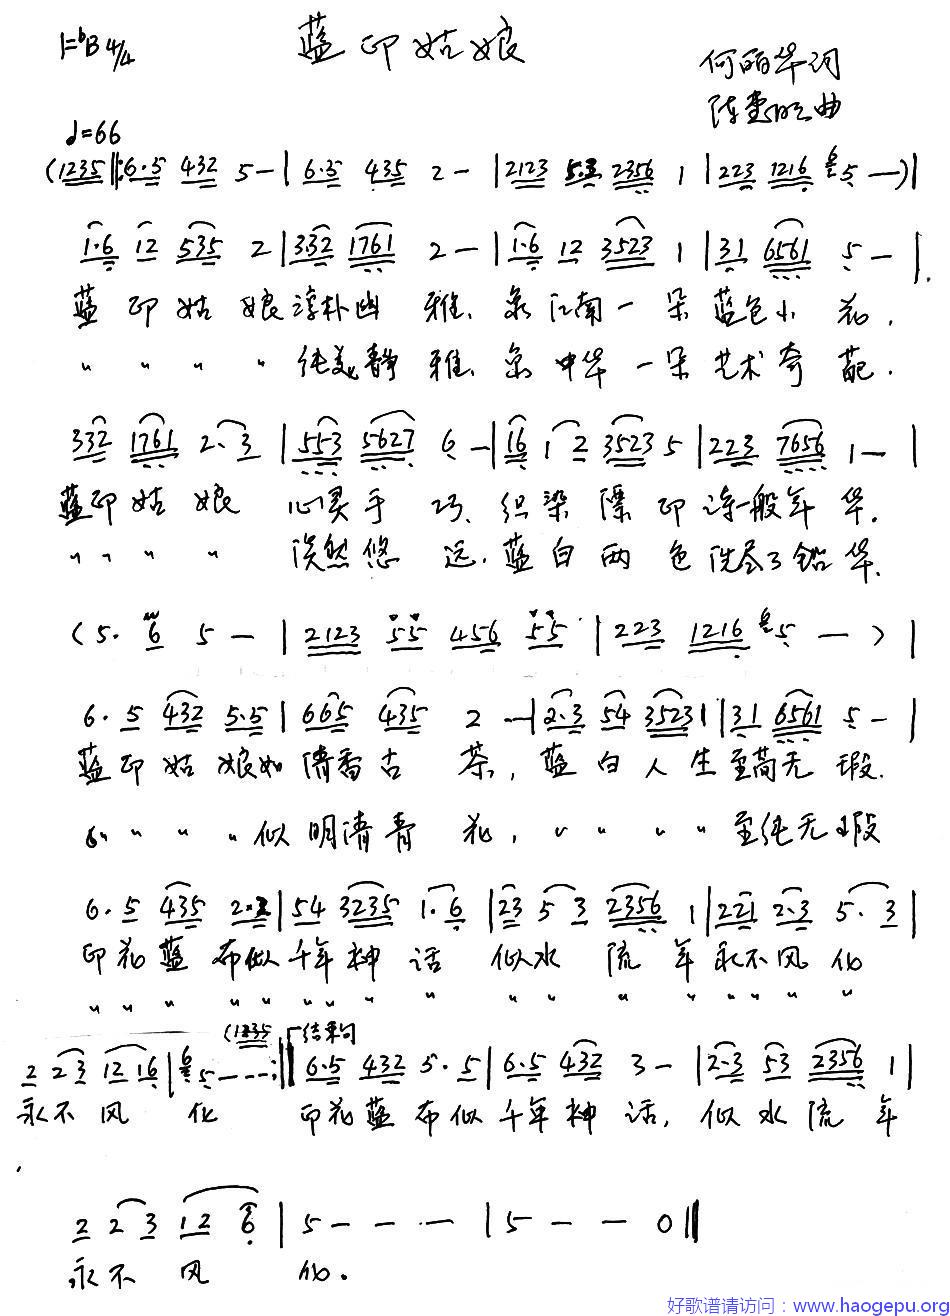 1=♭B 4/4 蓝印姑娘
何丽华词
陈 曲
♩=66
(1235‖:6·5 432 5-|6·5 435 2-|2123 5·3 2356 1|223 1216 6 5 —)|
1·6 12 535 2|332 1761 2-|1·6 12 3523 1|31 6561 5-|
蓝印姑娘淳朴幽雅、象江南一朵蓝色小花.
〃〃〃〃纯美静雅、象中华一朵艺术奇葩.
332 1761 2·3|553 5627 6-|16 12 3523 5|223 7656 1-|
蓝印姑娘心灵手巧、织染漂印诗一般年华.
〃〃〃〃淡然悠远.蓝白两色洗尽了铅华.
(5· 6 5-|2123 55 456 55|223 1216 6 5 —)|
6·5 432 5·5|665 435 2-|2·3 54 3523 1|31 6561 5-|
蓝印姑娘如清香古茶,蓝白人生至高无瑕.
〃〃〃〃似明清青花,〃〃〃〃至纯无瑕
6·5 435 2·2|54 3235 1·6|23 5 3 2356 1|221 2·3 5·3|
印花蓝布似千年神话似水流年永不风化
〃〃〃〃〃〃〃〃〃〃〃〃〃〃〃〃〃
(1235 结束句
2 2 3 12 16|6 5---:‖6·5 432 5·5|6·5 432 3-|2·3 53 2356 1|
永不风化 印花蓝布似千年神话,似水流年
2 2 3 1 2 6|5---|5--0‖
永不风化.
好歌谱请访问：www.haogepu.org